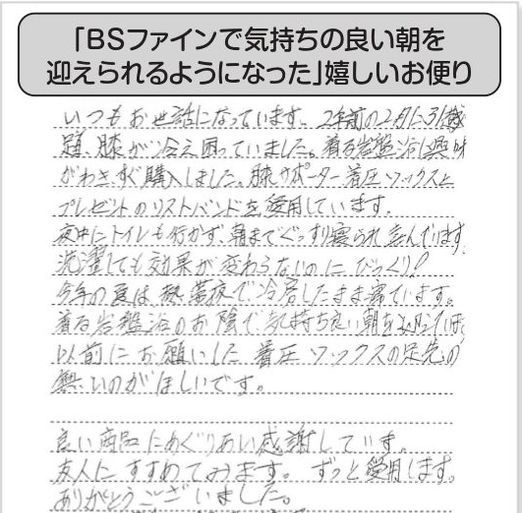 「BSファインで気持ちの良い朝を
迎えられるようになった」嬉しいお便り
いつもお世話になっています。2年前の2月に引越
膝が冷え困っていました。着る岩盤浴に興味
がわき、すぐ購入しました。膝サポーター着圧ソックスと
プレゼントのリストバンドを愛用しています。
夜中にトイレも行かず、朝までぐっすり寝られ喜んでいます
洗濯しても効果が変わらないのにびっくり!
今年の夏は熱帯夜で冷房したまま寝ています。
着る岩盤浴のお陰で気持ち良い朝を
以前にお願いした着圧ソックスの足先の
無いのがほしいです。
良い商品にめぐりあい感謝しています。
友人にすすめてみます。ずっと愛用します。
ありがとうございました。